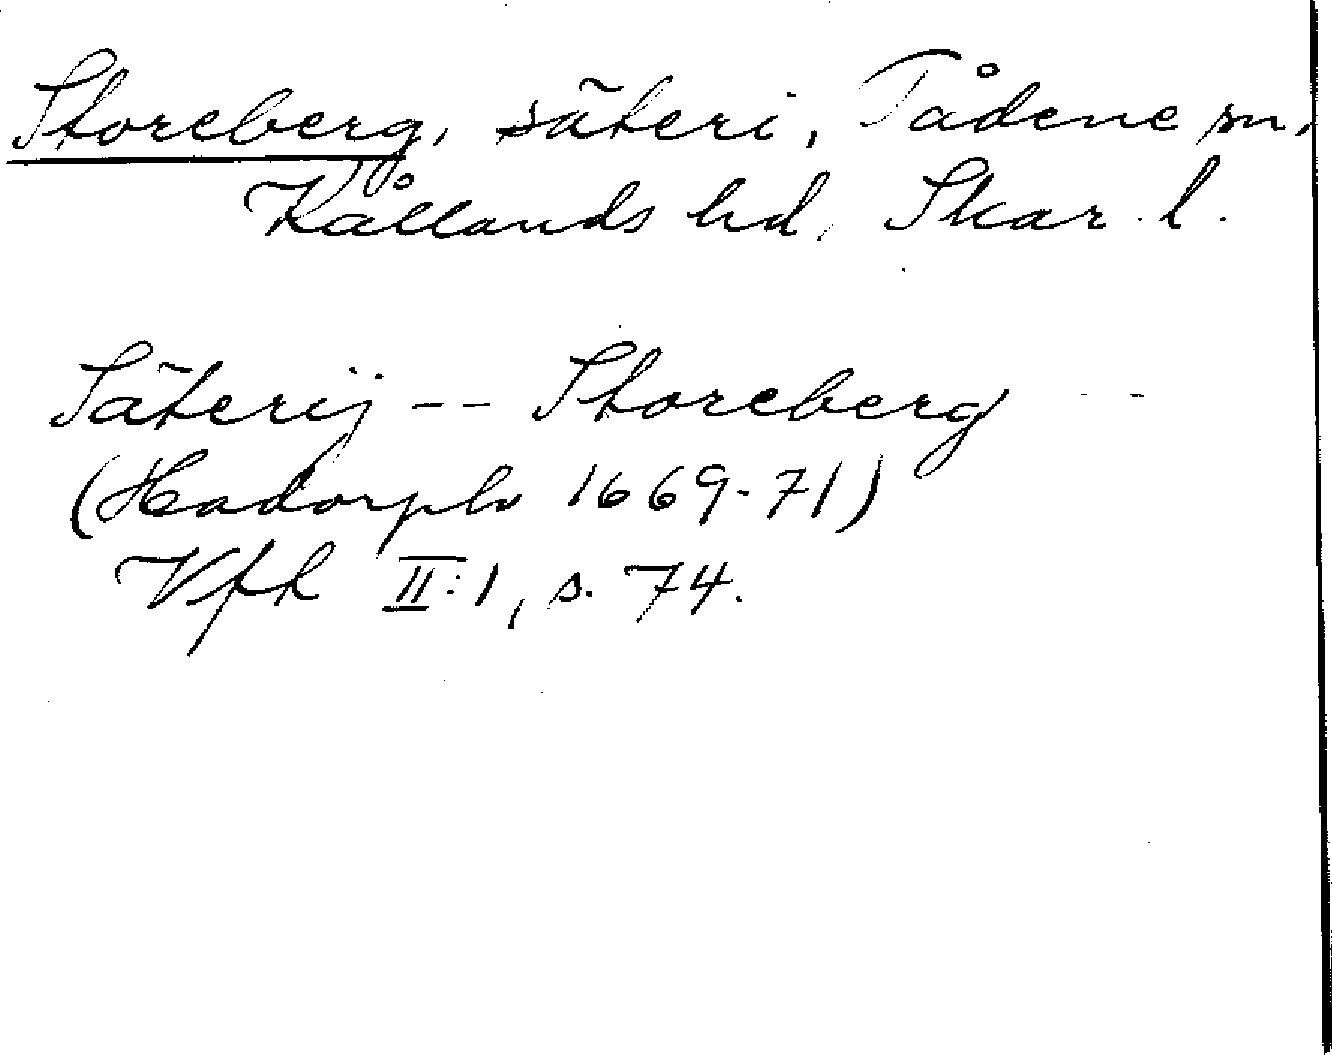 Storeberg, säteri, Tådene sn,
Kållands hd, Skar. l.
Säterij -- Storeberg --
(Hadorph 1669-71)
Vfk II:1, s. 74.